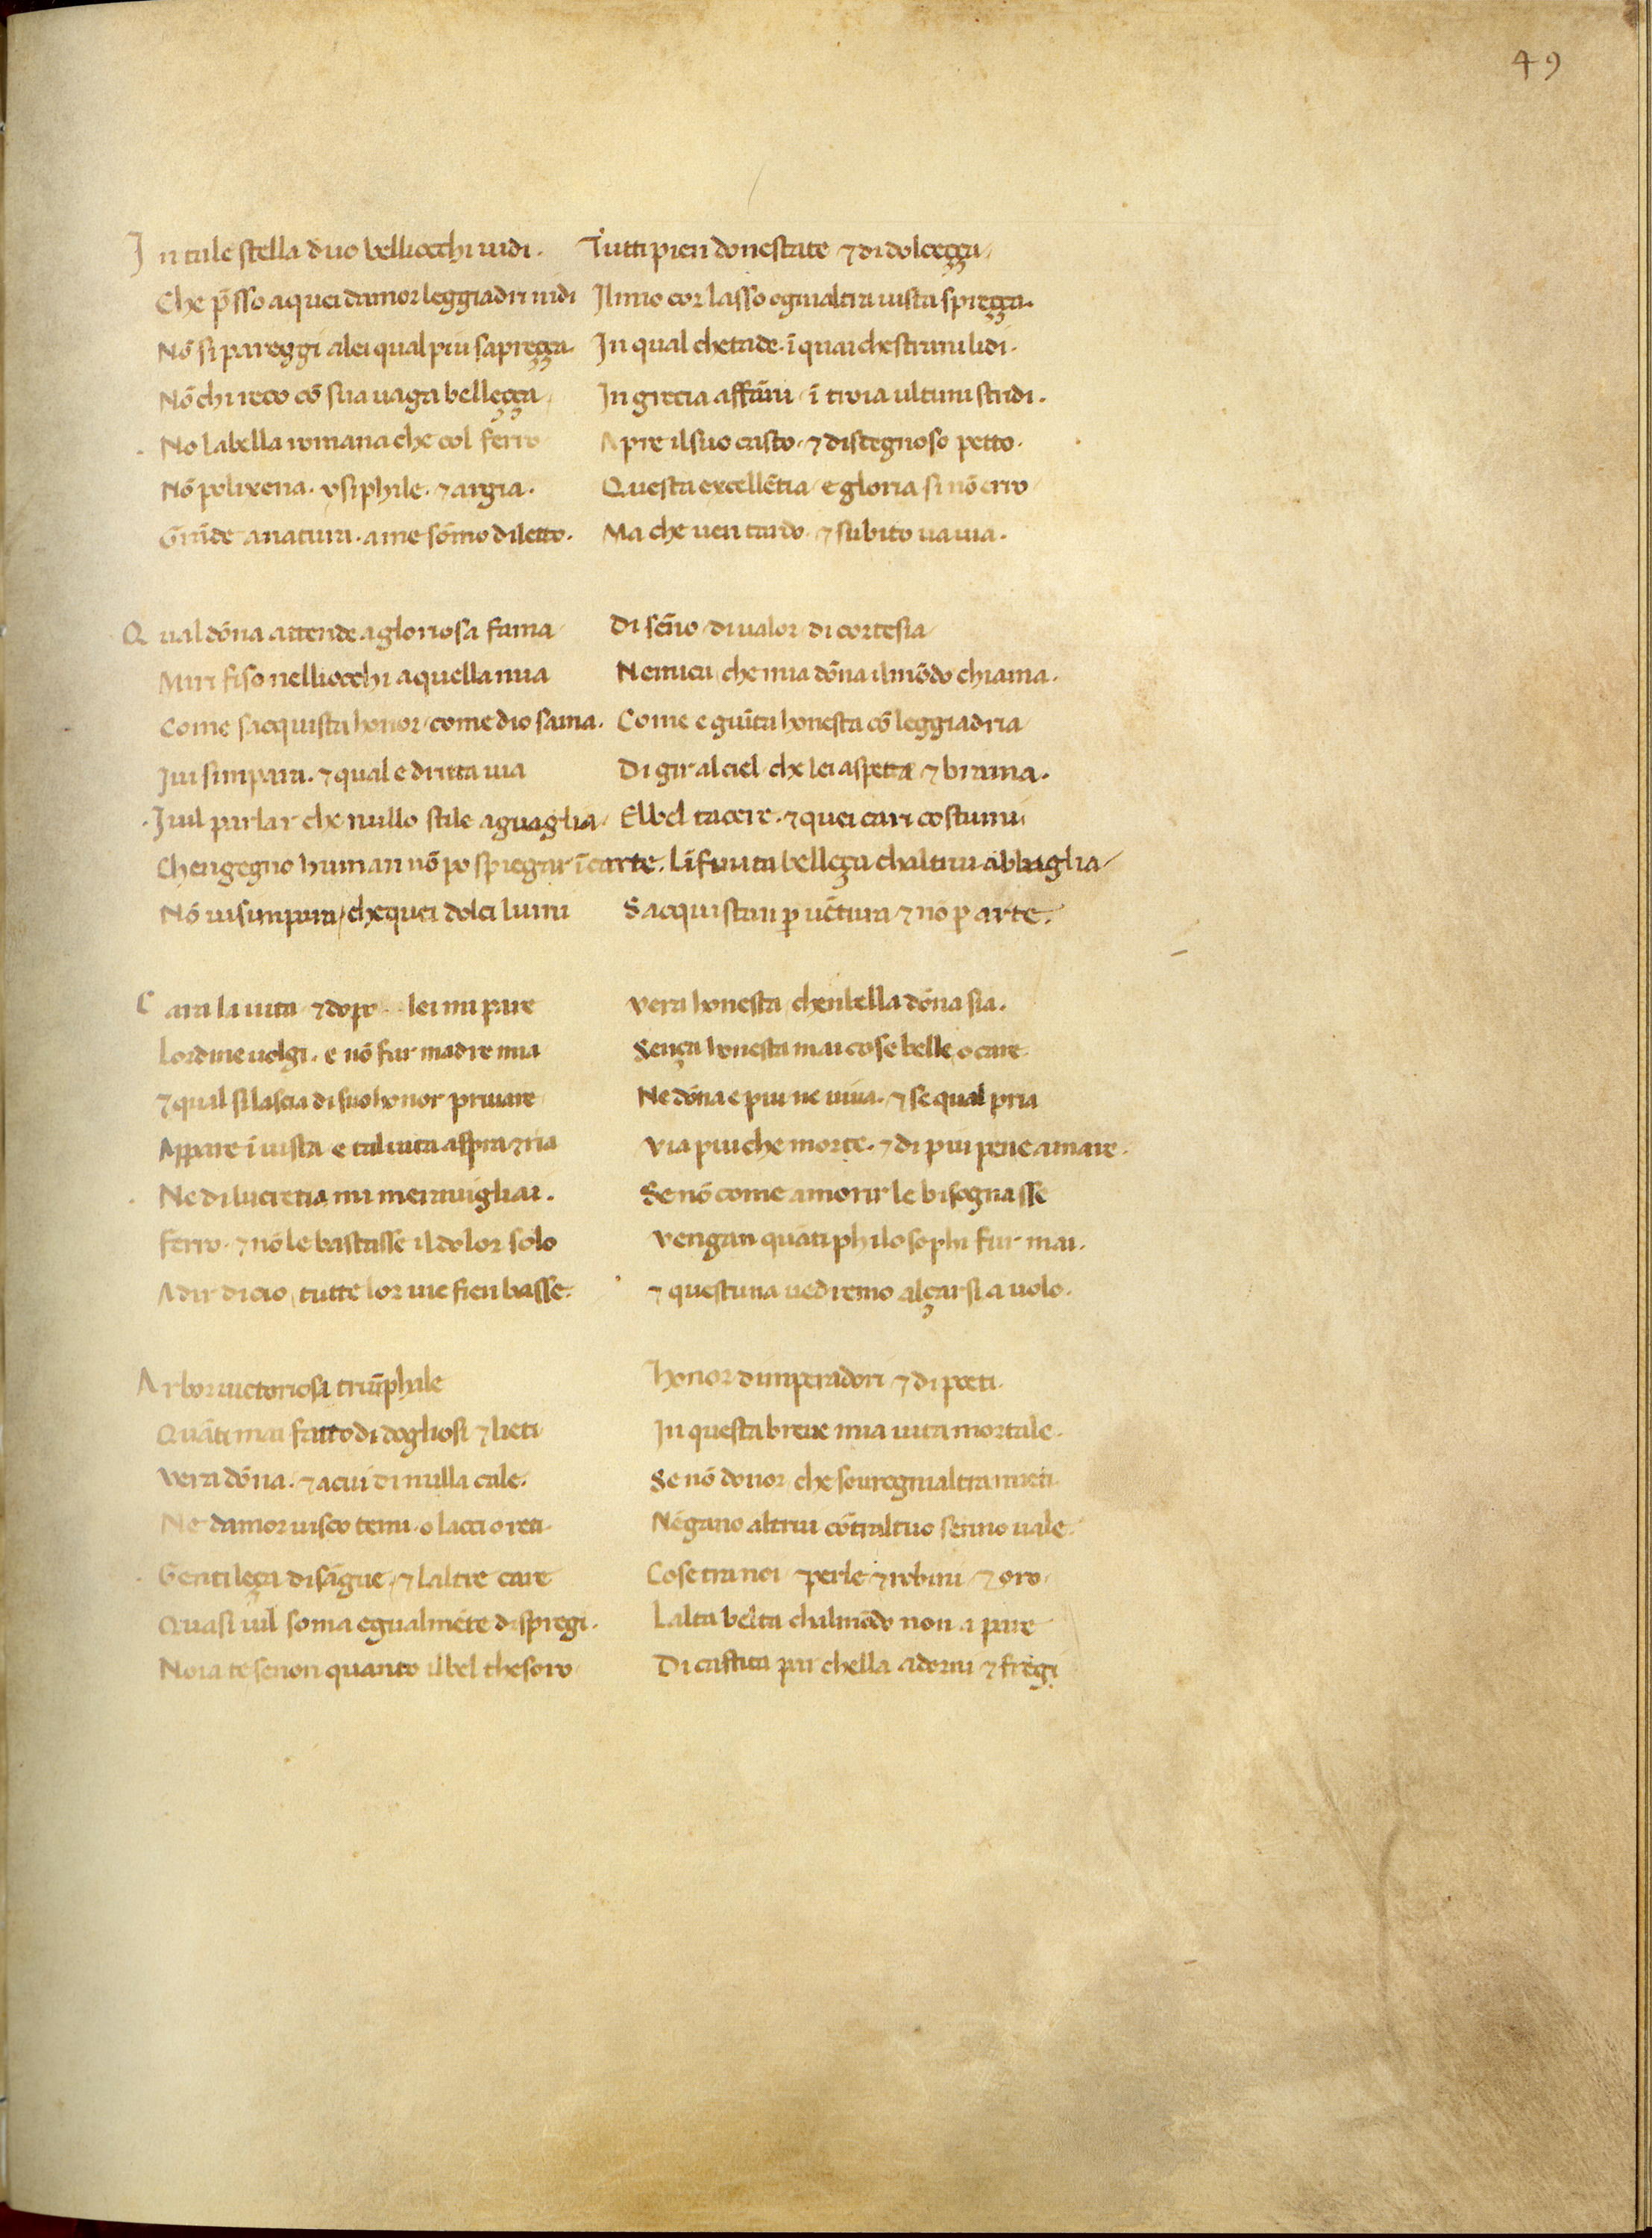 49
In tale stella duo belliocchi uidi. Tutti pien donestate ⁊ di dolceçça
Che p̄sso a quei damor leggiadri nidi Il mio cor lasso ogni altra uista spreçça.
Nō si pareggi a lei qual piu sapreçça. In qual chetade. ī quai che strani lidi.
Nō chi reco cō sua uaga belleçça In grecia affāni ī troia ultimi stridi.
No la bella romana che col ferro Apre il suo casto. ⁊ disdegnoso petto.
Nō polixena. ysiphile. ⁊ argia. Questa excellētia e gloria si nō erro
Grāde a natura. a me sōmo diletto. Ma che uen tardo. ⁊ subito ua uia.
Qual dōna attende a gloriosa fama Di sēno di ualor di cortesia
Miri fiso nelliocchi a quella mia Nemica che mia dōna il mōdo chiama.
Come sacquista honor come dio sama. Come e giūta honesta cō leggiadria
Iui simpara. ⁊ qual e dritta uia Di gir al ciel che lei aspetta ⁊ brama.
Iuil parlar che nullo stile aguaglia Elbel tacere. ⁊ quei cari costumi
Chengegno human nō po spiegar ī carte. Līfinita belleça chaltrui abbaglia
Nō uisimpara che quei dolci lumi Sacquistan p uētura ⁊ nō p arte.
Cara la uita ⁊ dopo lei mi pare Vera honesta chenbella dōna sia.
Lordine uolgi. e nō fur madre mia Sença honesta mai cose belle o care
⁊ qual si lascia di suo honor priuare Ne dōna e piu ne uiua. ⁊ se qual pria
Appare ī uista e tal uita aspra ⁊ ria Via piu che morte. ⁊ di piu pene amare.
Ne di lucretia mi merauigliai. Se nō come a morir le bisognasse
Ferro. ⁊ nō le bastasse il dolor solo Vengan quāti philosophi fur mai.
A dir di cio tutte lor uie fien basse. ⁊ questuna uedremo alçarsi a uolo.
Arbor uictoriosa triūphale Honor dimperadori ⁊ di poeti.
Quāti mai fatto di dogliosi ⁊ lieti In questa breue mia uita mortale.
Vera dōna. ⁊ a cui di nulla cale. Se nō donor che sourogni altra mieti
Ne damor uisco temi. o lacci o reti. Nēgano altrui cōtraltuo senno uale.
Gentileça di sāgue. ⁊ laltre care Cose tra noi perle ⁊ robini ⁊ oro
Quasi uil soma egualmēte dispregi. Lalta belta chalmōdo non a pare
Noia te senon quanto il bel thesoro Di castita par chella adorni ⁊ fregi